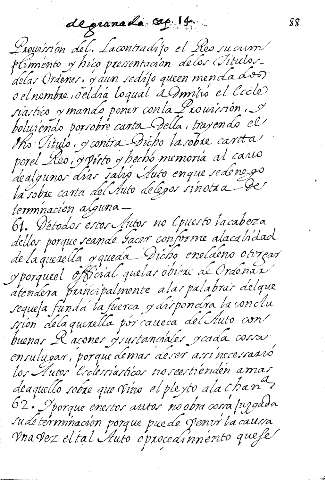 de granada cap. 14. 88
Provission del. La contradijo el Reo su cum
plimiento y hiço presentacion de los Titulos
de las Ordenes, y aun se dijo que enmendado
o el nombre, o el dia lo qual admitio el Eccle
siastico y mando poner con la Provission, y
bolviendo por sobre carta della, trayendo el
dho Titulo, y contra dicho la sobre cartta
por el Reo, y visto y hecho memoria al cavo
de algunos dias salio Auto en que se denego
la sobre carta del Auto de legos sin otra de
terminacion alguna
61. De todos estos Autos no e puesto la cabeza
dellos porque se an de hacer conforme a la calidad
de la querella y queda dicho en el deno otorgar
y porque el official que las obra al Ordenar
atendera principalmente a las palabras del que
se quexa funda la fuerça, y dispondra la conclu
ssion de la querella por caveça del Auto con
buenas Raçones y sustanciales y cada cossa
en su lugar, porque demas de ser assi necessario
los Autos Ecclesiasticos no se estienden a mas
de aquello sobre que vino el pleyto a la Chanª
62. Y porque en estos autos no obra cossa juzgada
su determinacion porque puede venir la caussa
una vez el tal Auto o procedimiento que se